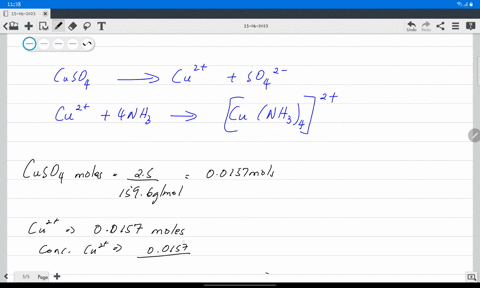 11:38
15-06-2023
15-06-2023
Undo
Redo
CuSO₄ ⟶ Cu²⁺ + SO₄²⁻
Cu²⁺ + 4NH₃ ⟶ [Cu (NH₃)₄]²⁺
CuSO₄ moles = 2.5 / 159.6g/mol = 0.0157mols
Cu²⁺ ⇒ 0.0157 moles
Conc. Cu²⁺ ⇒ 0.0157
Page